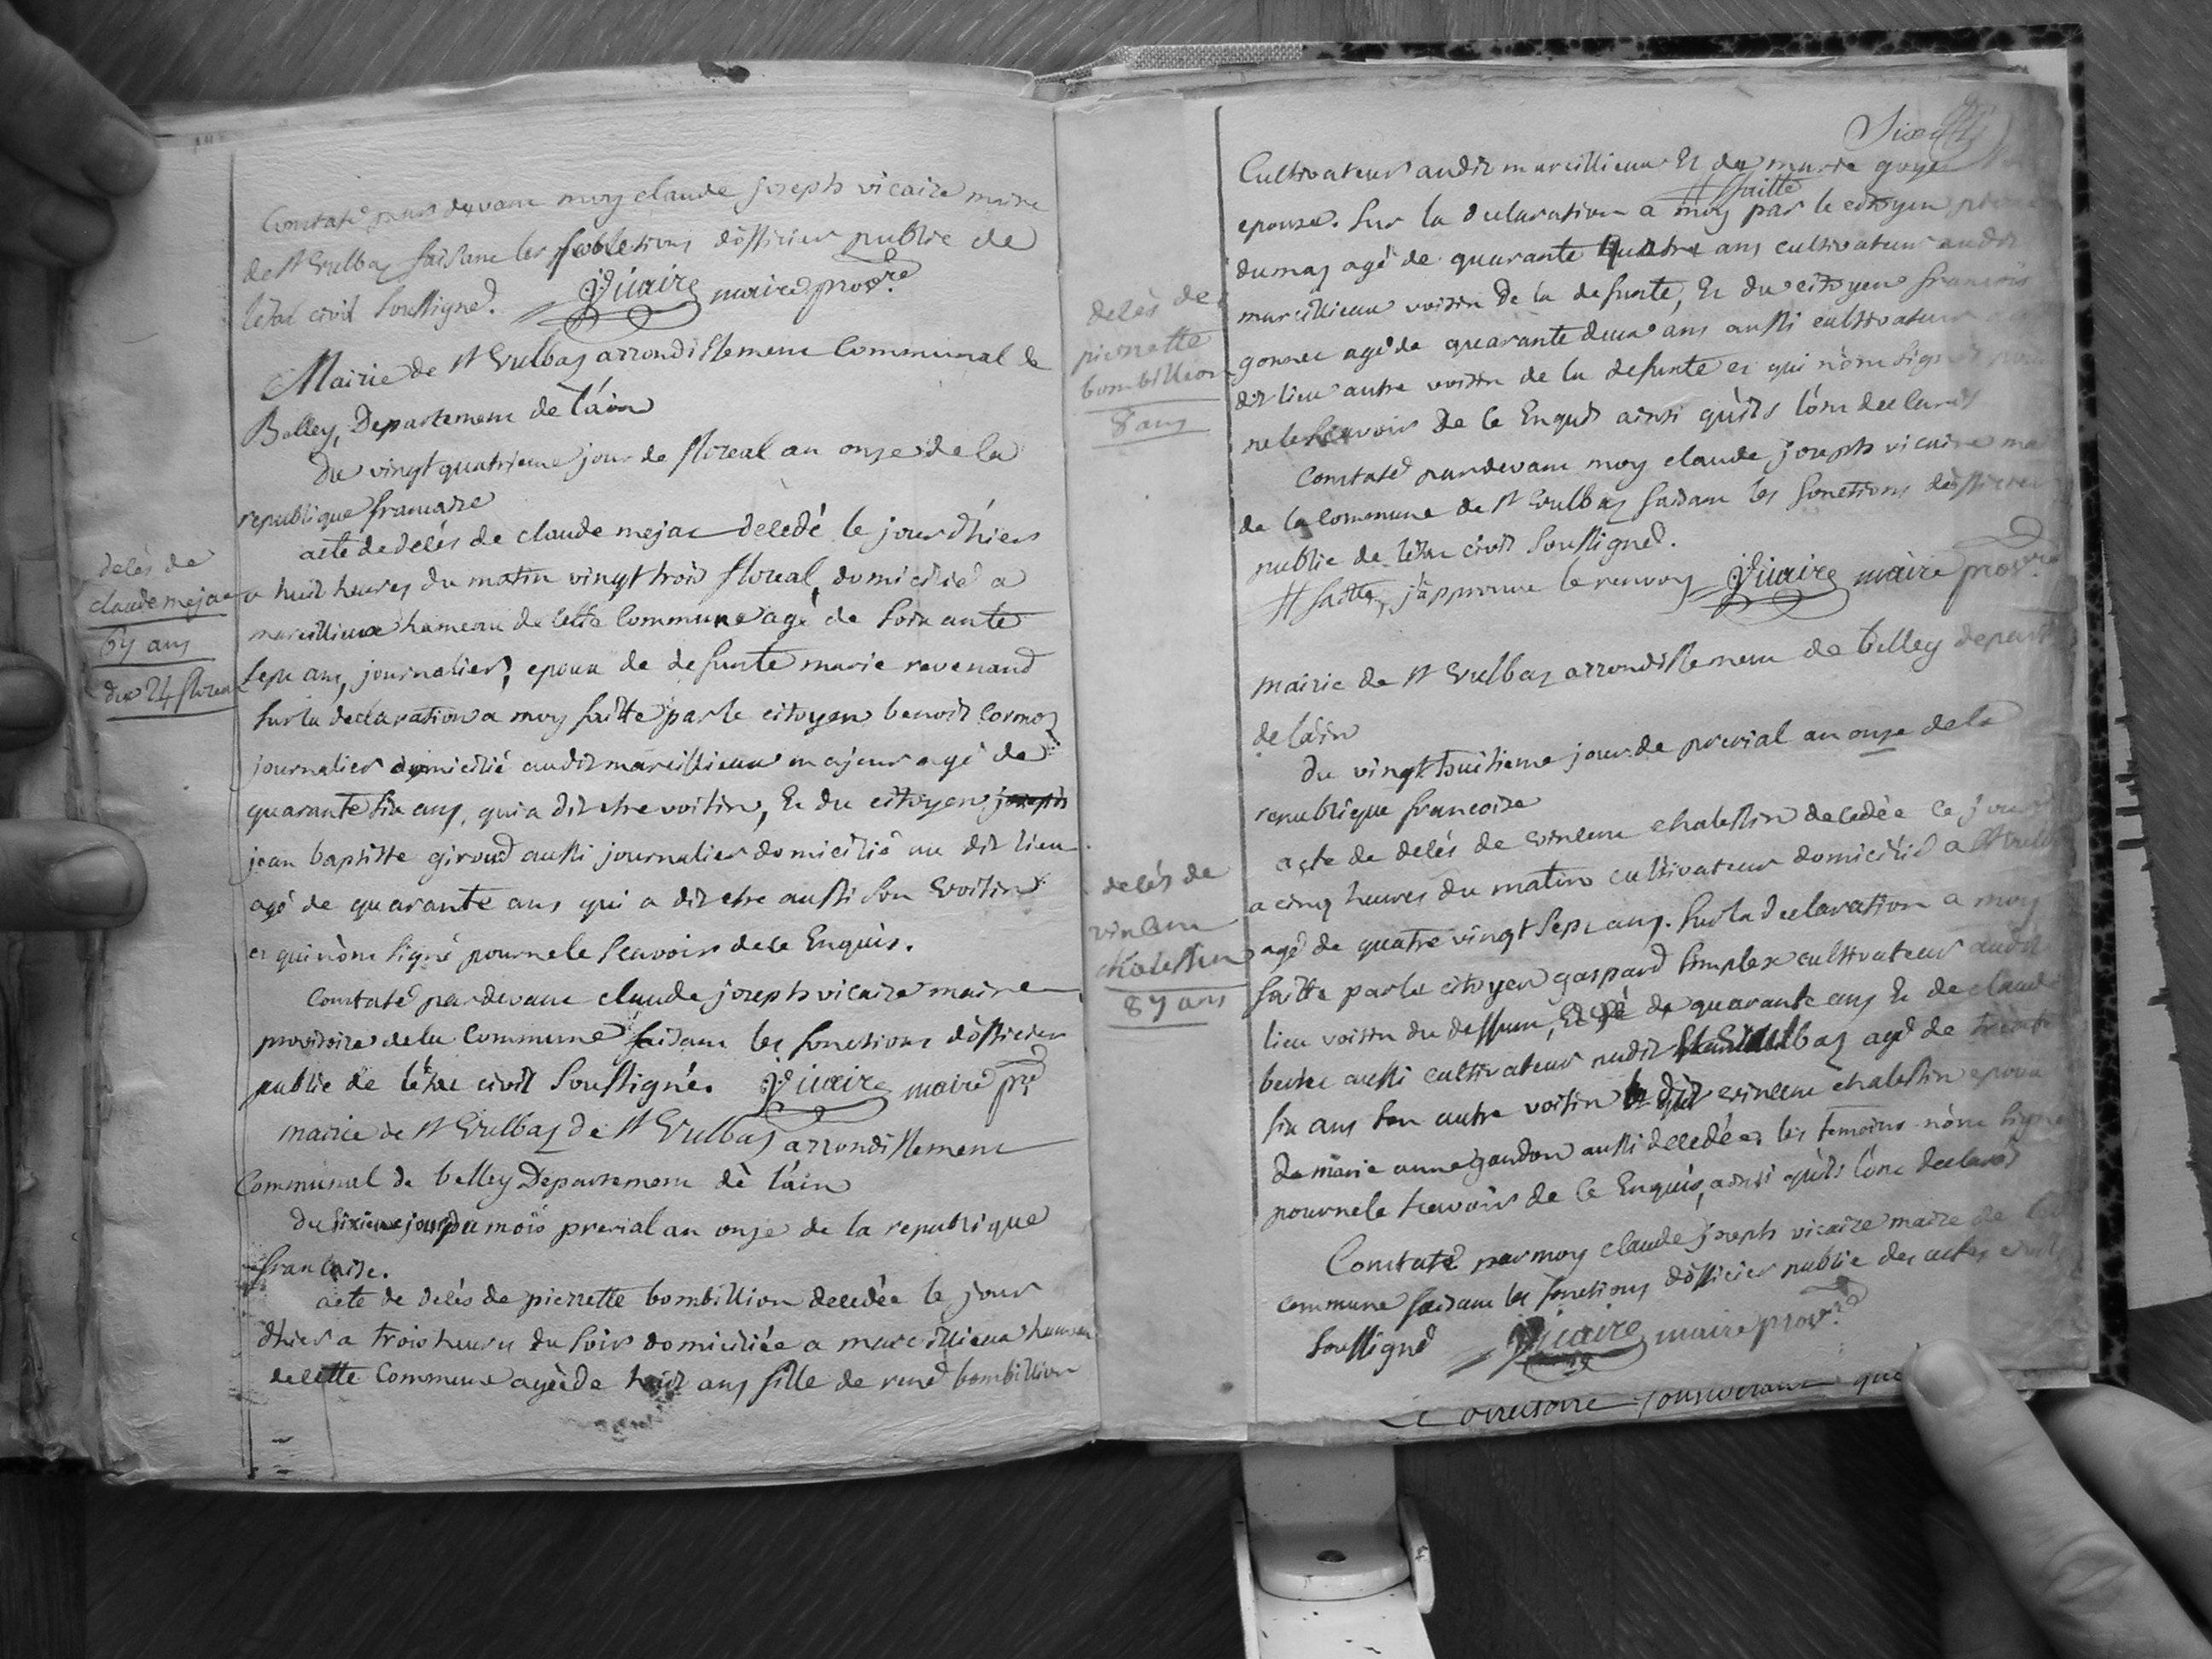 Constaté par devant moy claude joseph vicaire maire
de St Vulbas faisant les fonctions dofficier public de
letat civil soussigné. Vicaire maire provre
Mairie de St Vulbas arrondissement Communal de
Belley, Departement de l'ain
Du vingt quatrieme jour de floreal an onze de la
republique francaise
acte de delés de claude mejac deledé le jour d'hier
a huit heures du matin vingt trois floreal, domicilié a
marcillieux hameau de cette Commune agé de soixante
sept ans, journalier, epoux de defunte marie revenand
sur la declaration a moy faitte par le citoyen benoit cormoz
journalier domicilié audit marcillieux majeur agé de
quarante six ans, qui a dit etre voisin, Et du citoyen joseph
jean baptiste giroud aussi journalier domicilié au dit lieu
agé de quarante ans qui a dit etre aussi son voisin
et qui n'ont signé pour ne le scavoir de ce Enquis.
Constaté par devant claude joseph vicaire maire
provisoire de la Commune faisant les fonctions dofficier
public de létat civil soussigné. Vicaire maire pre
mairie de St Vulbas de St Vulbas arrondissement
Communal de belley Departement de l'ain
du sixieme jour du mois prerial an onze de la republique
francaise.
acte de delés de pierrette bombillion deledée le jour
dhier a trois heures du soir domiciliée a marcillieux hameau
de cette Commune agée de huit ans fille de rené bombillion
delés de
claude mejac
67 ans
du 24 floreal
Cultivateur audit marcillieux Et de marie goye
epouse. sur la declaration a moy # faitte par le citoyen
dumas agé de quarante quatre ans cultivateur audit
marcillieux voisin de la defunte, Et du citoyen francois
gonnet agé de quarante deux ans aussi cultivateur
dit lieu autre voisin de la defunte et qui n'ont signé pour
ne le scavoir de ce Enquis ainsi qu'ils l'ont declaré
Constaté pardevant moy claude joseph vicaire ma
de la Commune de St Vulbas faisant les fonctions dofficier
public de létat civil soussigné.
# faitte, j'approuve le renvoy Vicaire maire provre
mairie de St Vulbas arrondissement de belley depart
de l'ain
du vingt huitieme jour de prerial an onze de la
republique francoise
acte de delés de vincent chalessin deledée le jour
a cinq heures du matin cultivateur domicilié a St Vulbas
agé de quatre vingt sept ans. sur la declaration a moy
faitte par le citoyen gaspard simplex cultivateur audit
lieu voisin du deffunt, agé de quarante ans Et de claude
aussi cultivateur audit St Vulbas agé de trente
six ans son autre voisin le dit vincent chalessin epoux
de marie anne gandon aussi deledée, les temoins n'ont signé
pour ne le scavoir de ce Enquis, ainsi qu'ils l'ont declaré
Constaté par moy claude joseph vicaire maire de la
commune faisant les fonctions dofficier public des actes civils
soussigné Vicaire maire provre
delés de
pierrette
bombillion
8 ans
delés de
vincent
chalessin
87 ans